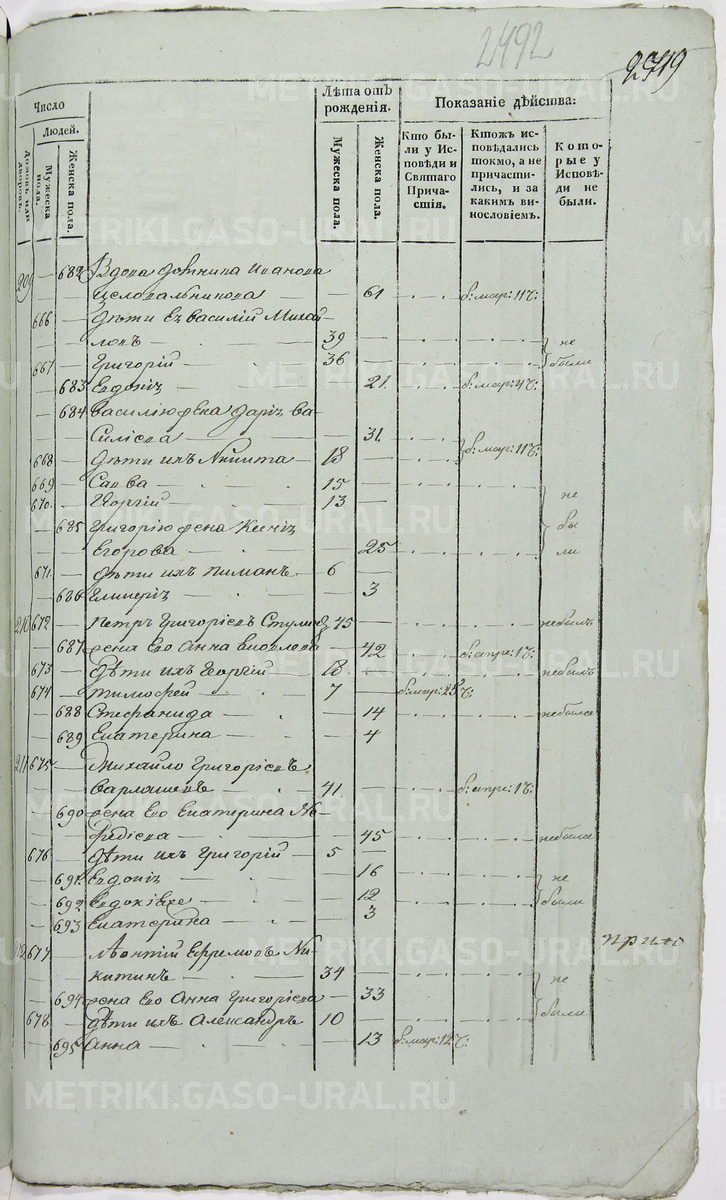 2492
2719
Число
Людей.
Домовъ или дворовъ.
Мужеска пола.
Женска пола.
Лѣта отъ рожденія.
Мужеска пола.
Женска пола.
Показаніе дѣйства:
Кто бы-
ли у Ис-
повѣди и
Святаго
Прича-
стія.
Ктожъ ис-
повѣдались
токмо, а не
причасти-
лись, и за
какимъ ви-
нословіемъ.
Кото-
рые у
Исповѣ-
ди не
были.
209 682 Вдова Домника Иванова
Целовальникова 61 б: мар: 11 ч:
666 Дѣти ея Василій Михай-
ловъ 39 не
667 Григорій 36 были
683 Евдокія 21 б: мар: 4 ч:
684 Василію жена Дарія Ва-
силіева 31 б: мар: 11 ч:
668 Дѣти ихъ Никита 18
669 Савва 15
670 Георгій 13 не
685 Григорію жена Ксенія бы
Егорова 25 ли
671 Дѣти ихъ Пиманъ 6
686 Гликерія 3
210 672 Петръ Григоріевъ 45 небылъ
687 жена Его Анна 42 б: апре: 1 ч:
673 Дѣти ихъ Георгій 18 небылъ
674 Тимофей 7 б: мар: 25 ч:
688 Стефанида 14 небыла
689 Екатерина 4
211 675 Михайло Григоріевъ
Варлашевъ 41 б: апре: 1 ч:
690 жена Его Екатерина Ме-
фодіева 45 небыла
676 Дѣти ихъ Григорій 5
691 Евдокія 16 не
692 12 были
693 Екатерина 3
212 677 Леонтій Ефремовъ Ни-
китинъ 34 не
694 жена Его Анна Григоріева 33
678 Дѣти ихъ Александръ 10 были
695 Анна 13 б: мар: 12 ч:
METRIKI.GASO-URAL.RU